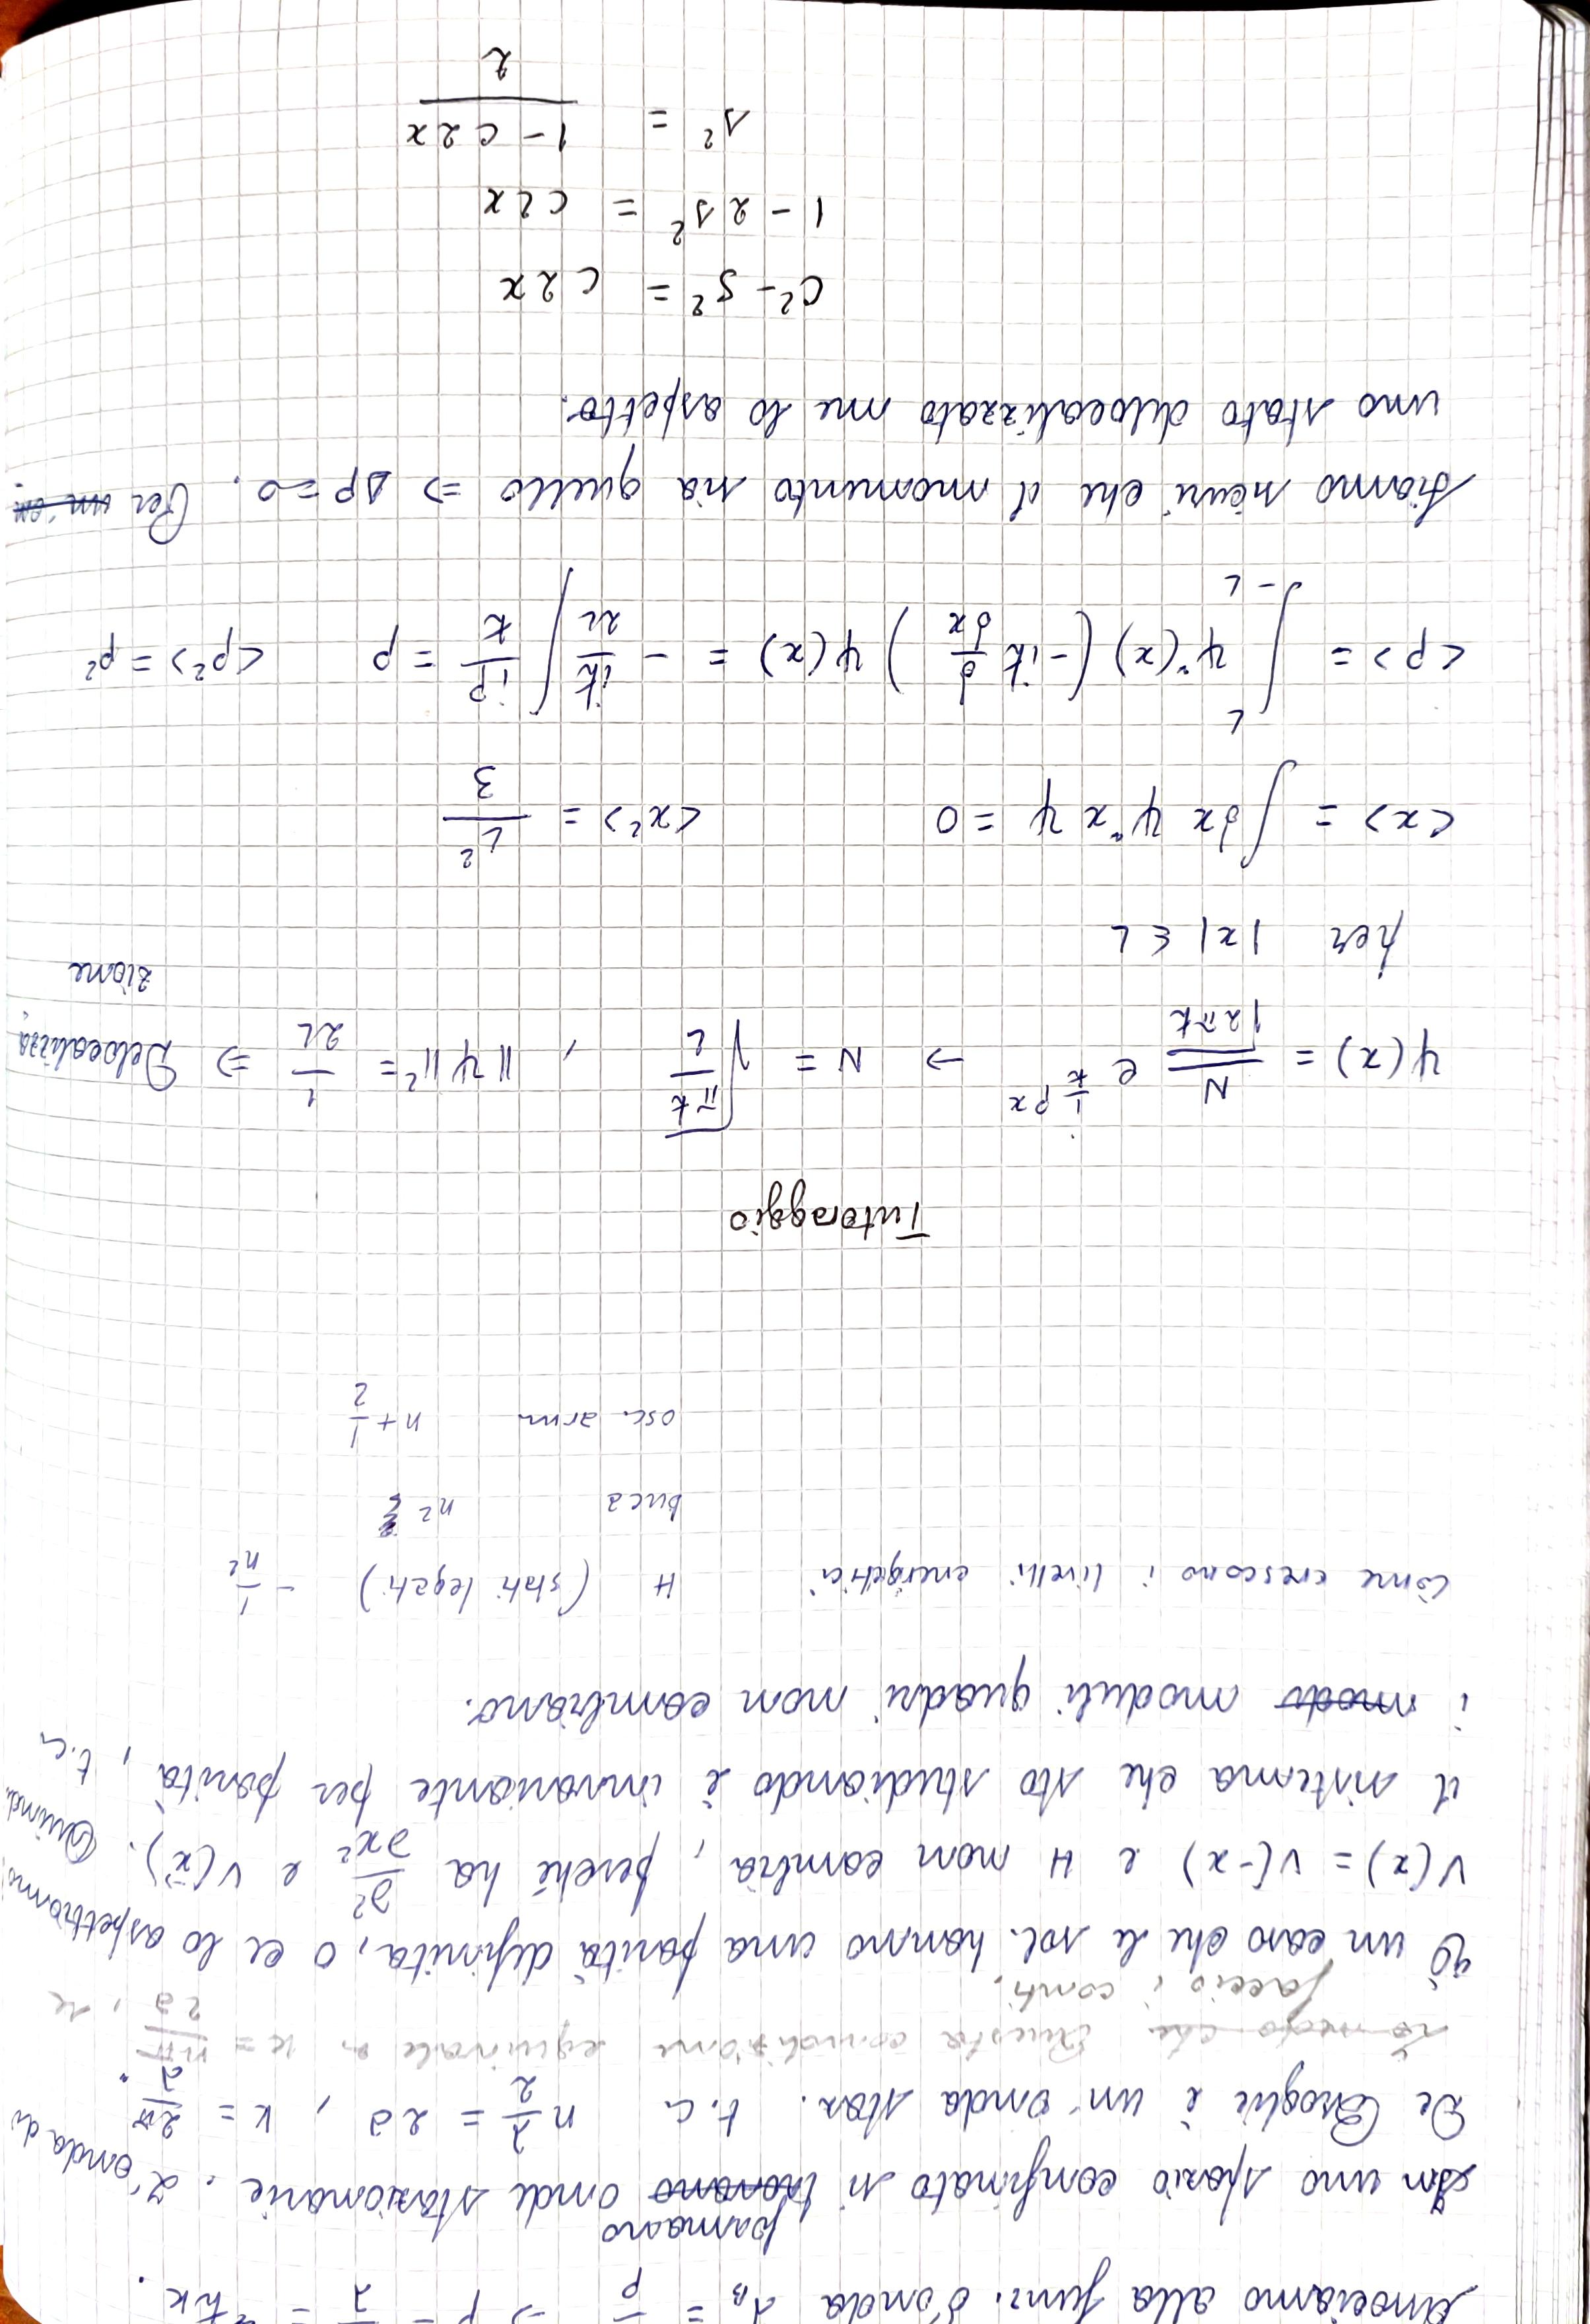 Associamo alla funz. d'onda λ_B = /p ⇒ p = /λ = ħk.
In uno spazio confinato si ~~trovano~~ formano onde stazionarie. L'onda di
De Broglie è un'onda staz. t.c. n λ/2 = 2a , k = 2π/λ.
Questa condizione equivale a k = nπ/2a , se
faccio i conti.
È un caso che le sol. hanno una parità definita, o ce lo aspettiamo?
V(x) = V(-x) e H non cambia, perché ha ∂²/∂x² e V(x⃗). Quindi
il sistema che sto studiando è invariante per parità, t.c.
i ~~modu~~ moduli quadri non cambiano.
Come crescono i livelli energetici H (stati legati) - 1/n²
buca n²
osc. arm. n + 1/2
Tutoraggio
ψ(x) = N/√2πħ e^{i/ħ px} → N = √(πħ/L) , ||ψ||² = 1/2L ⇒ Delocalizza
zione
per |x| ≤ L
<x> = ∫dx ψ* x ψ = 0 <x²> = L²/3
<p> = ∫_{-L}^{L} ψ*(x) (-iħ d/dx) ψ(x) = - iħ/2L ∫ ip/ħ = p <p²> = p²
Siamo sicuri che il momento sia quello ⇒ Δp = 0. Per
uno stato delocalizzato me lo aspetto.
c² - s² = c2x
1 - 2s² = c2x
s² = 1 - c2x / 2